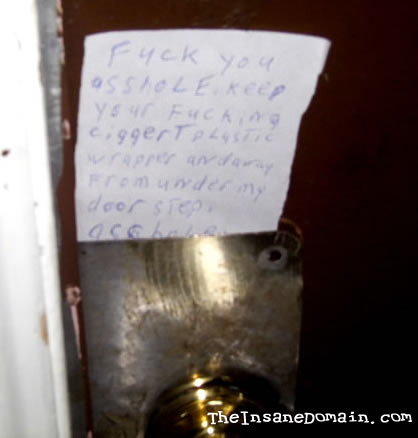 Fuck you
assholE. keep
your Fucking
ciggerT plastic
wrapper and away
From under my
door step.
asshole.
TheInsaneDomain.com